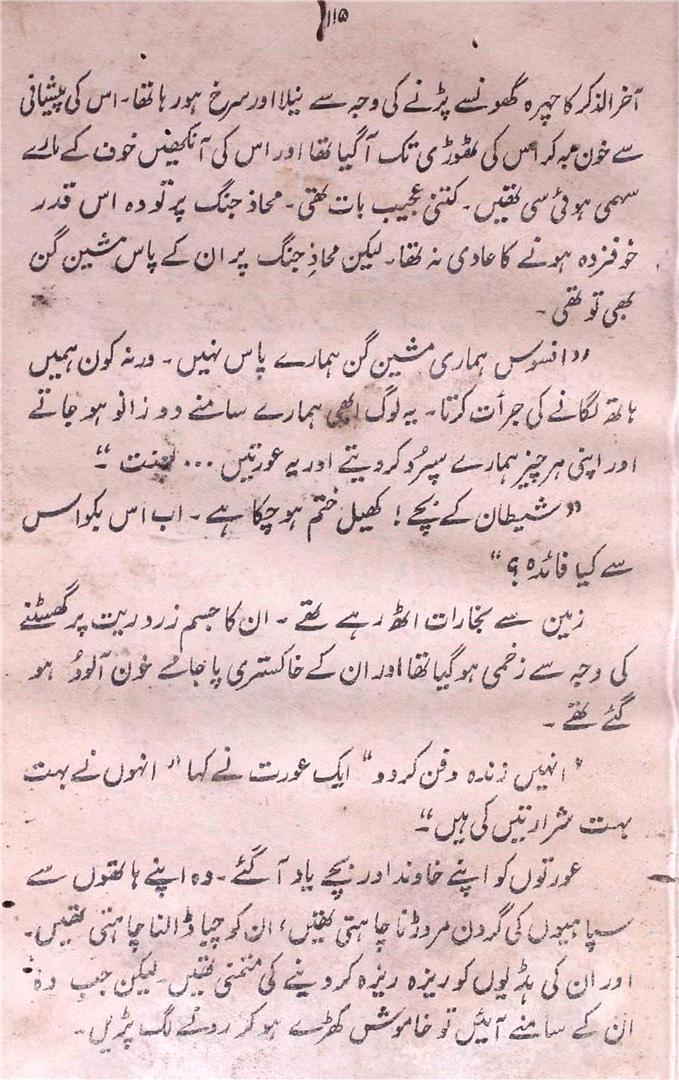 ۱۱۵
آخرالذکر کا چہرہ گھونسے پڑنے کی وجہ سے نیلا اور سرخ ہو رہا تھا۔ اس کی پیشانی
سے خون بہہ کر اس کی ٹھوڑی تک آگیا تھا اور اس کی آنکھیں خوف کے مارے
سہمی ہوئی سی تھیں۔ کتنی عجیب بات تھی۔ محاذ جنگ پر تو وہ اس قدر
خوفزدہ ہونے کا عادی نہ تھا۔ لیکن محاذِ جنگ پر ان کے پاس مشین گن
بھی تو تھی۔
”افسوس ہماری مشین گن ہمارے پاس نہیں۔ ورنہ کون ہمیں
ہاتھ لگانے کی جرأت کرتا۔ یہ لوگ ابھی ہمارے سامنے دو زانو ہو جاتے
اور اپنی ہر چیز ہمارے سپرُد کر دیتے اور یہ عورتیں ... لعنت“۔
”شیطان کے بچے! کھیل ختم ہو چکا ہے۔ اب اس بکواس
سے کیا فائدہ؟“
زمین سے بخارات اٹھ رہے تھے۔ ان کا جسم زرد ریت پر گھسٹنے
کی وجہ سے زخمی ہو گیا تھا اور ان کے خاکستری پاجامے خون آلودُ ہو
گئے تھے۔
”انہیں زندہ دفن کر دو“ ایک عورت نے کہا ”انہوں نے بہت
بہت شرارتیں کی ہیں“۔
عورتوں کو اپنے خاوند اور بچے یاد آگئے۔ وہ اپنے ہاتھوں سے
سپاہیوں کی گردن مروڑنا چاہتی تھیں، ان کو چبا ڈالنا چاہتی تھیں۔
اور ان کی ہڈیوں کو ریزہ ریزہ کر دینے کی متمنی تھیں۔ لیکن جب وہ
ان کے سامنے آئیں تو خاموش کھڑے ہو کر رونے لگ پڑیں۔